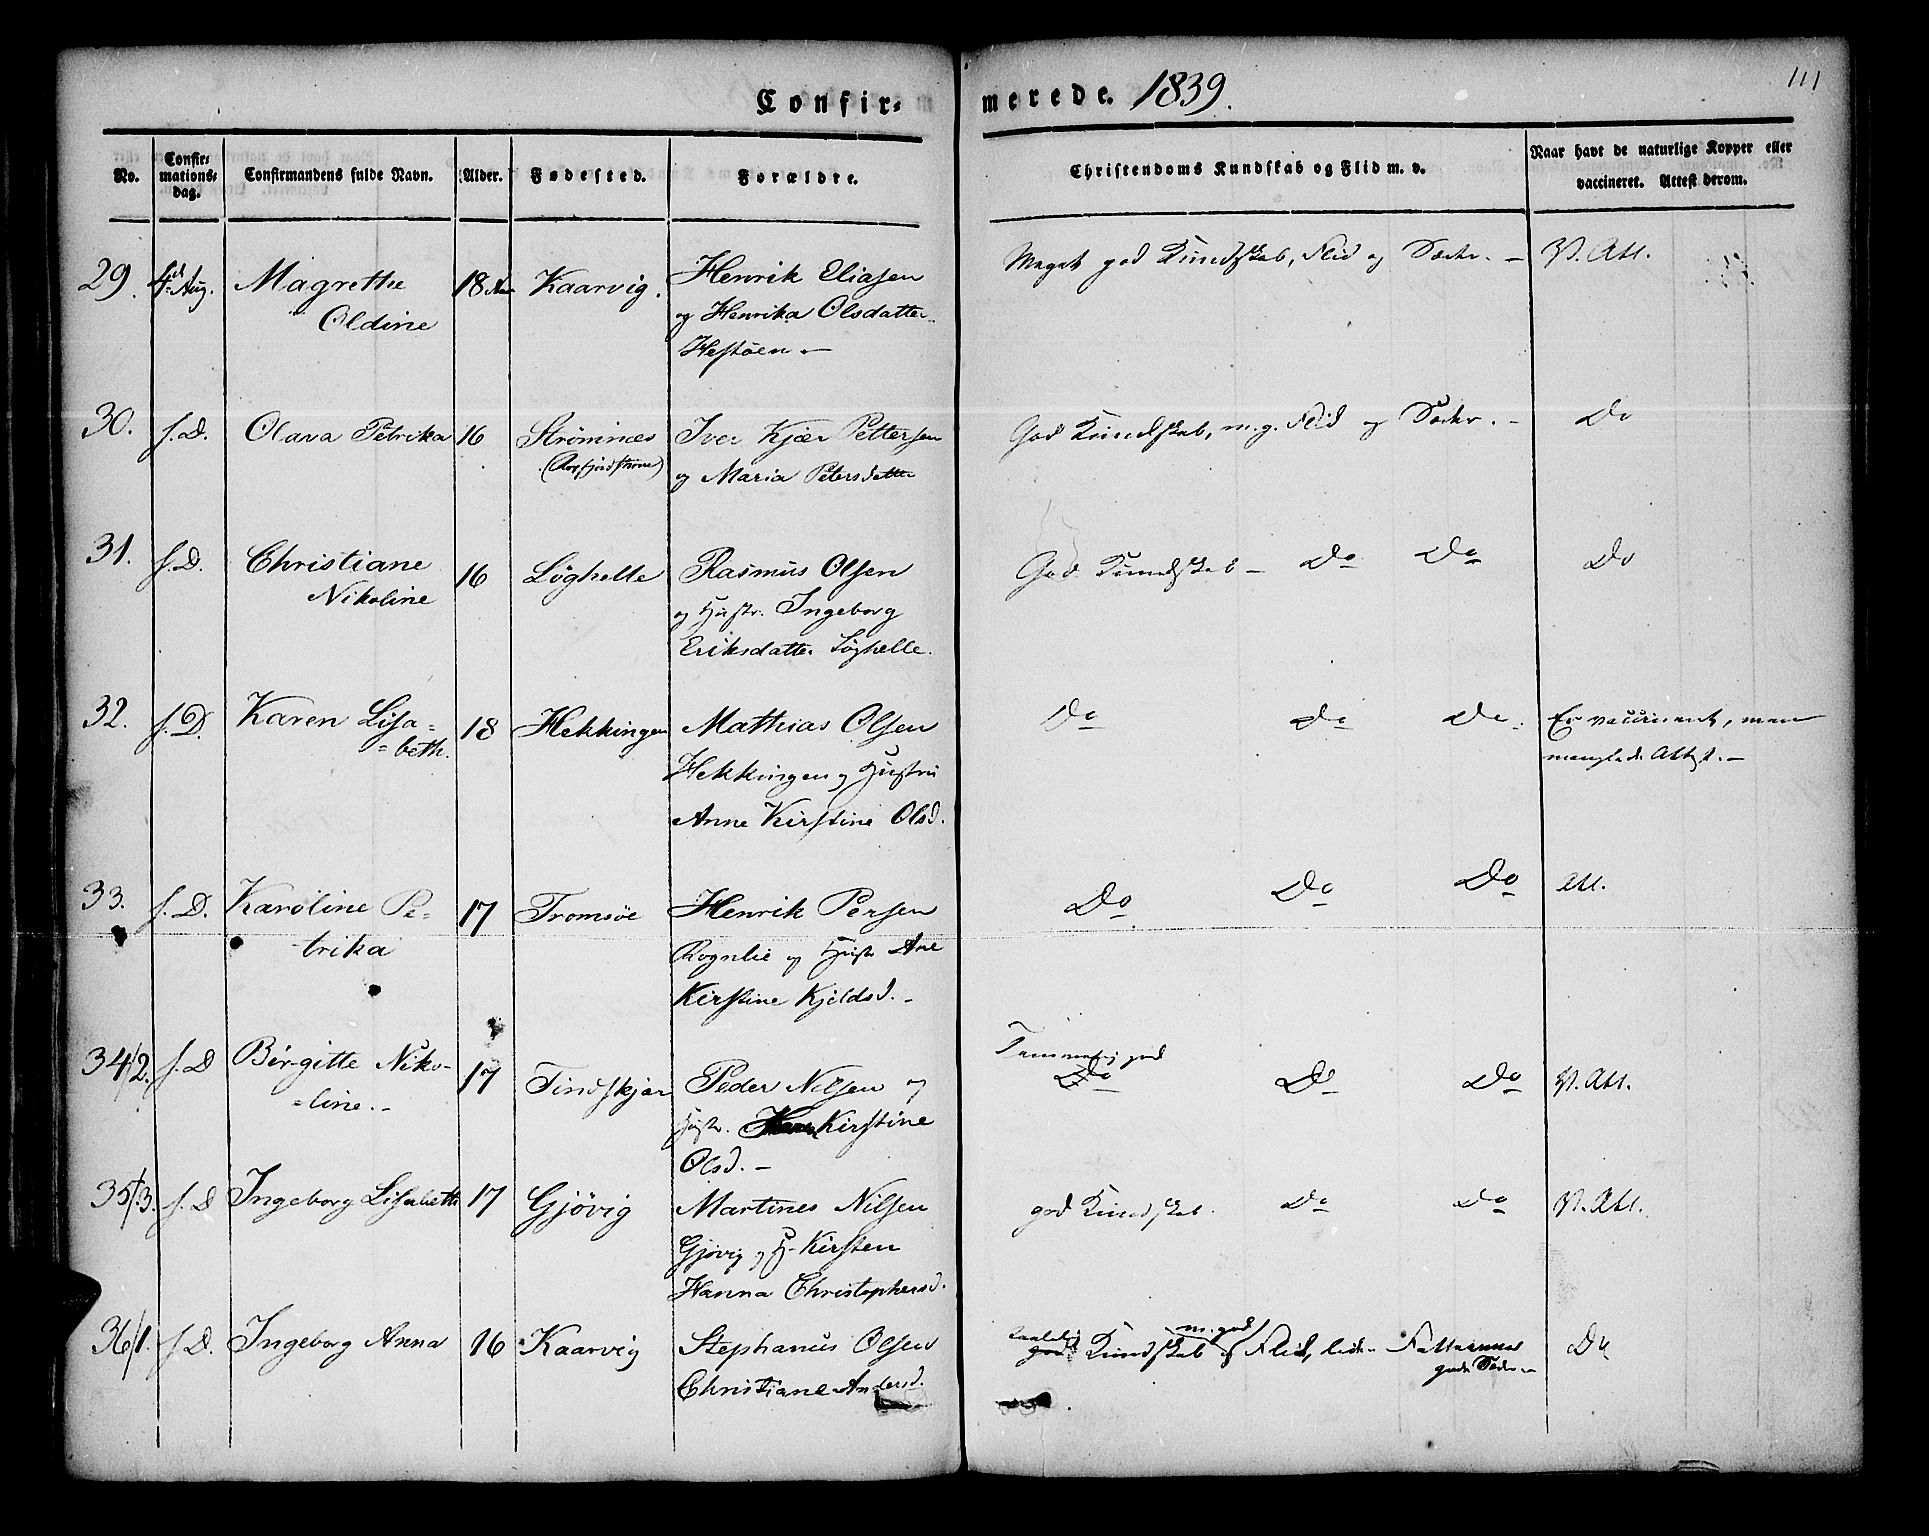 Confir-
merede. 1839.
111
No.
Confir-
mations-
dag.
Confirmandens fulde Navn.
Alder.
Fødested.
Forældre.
Christendoms Kundskab og Flid m. v.
Naar havt de naturlige Kopper eller
vaccineret. Attest derom.
29. 4d Aug. Magrethe 18 Kaarvig. Henrik Eliasen Meget god Kundskab, Flid og Sæder. - V. Att.
Oldine og Henrika Olsdatter
Hestøen -
30. s.D. Olava Petrika 16 Strømnes Iver Kjær Pettersen God Kundskab, m.g. Flid og Sæder. - Do
og Maria Petersdatter
31. s.D. Christiane 16 Løghelle Rasmus Olsen God Kundskab - Do Do Do
Nikoline og Hustr. Ingeborg
Eriksdatter Løghelle.
32. s.D. Karen Lisa= 18 Hekkingen Mathias Olsen Do Do Do. Er vaccineret, men
=beth. Hekkingen og Hustru manglede Attest. -
Anne Kirstine Olsd.
33. s.D. Karoline Pe- 17 Tromsøe Henrik Persen Do Do Do Att.
trika Rognlie og Hustr Ane
Kirstine Kjeldsd. -
34/2. s.D Birgitte Niko- 17 Tindskjær Peder Nilsen og Temmelig god Do Do Do V. Att.
=line. - Hustr. Kirstine
Olsd. -
35/3. s.D Ingeborg Lisabeth 17 Gjøvig Martines Nilsen god Kundskab Do Do V. Att.
Gjøvig og H. Kirsten
Hanna Christophersd.
36/1. s.D. Ingeborg Anna 16 Kaarvig Stephanus Olsen god Kundskab m. god Flid, Do
Christiane Andersd. gode Sæder -